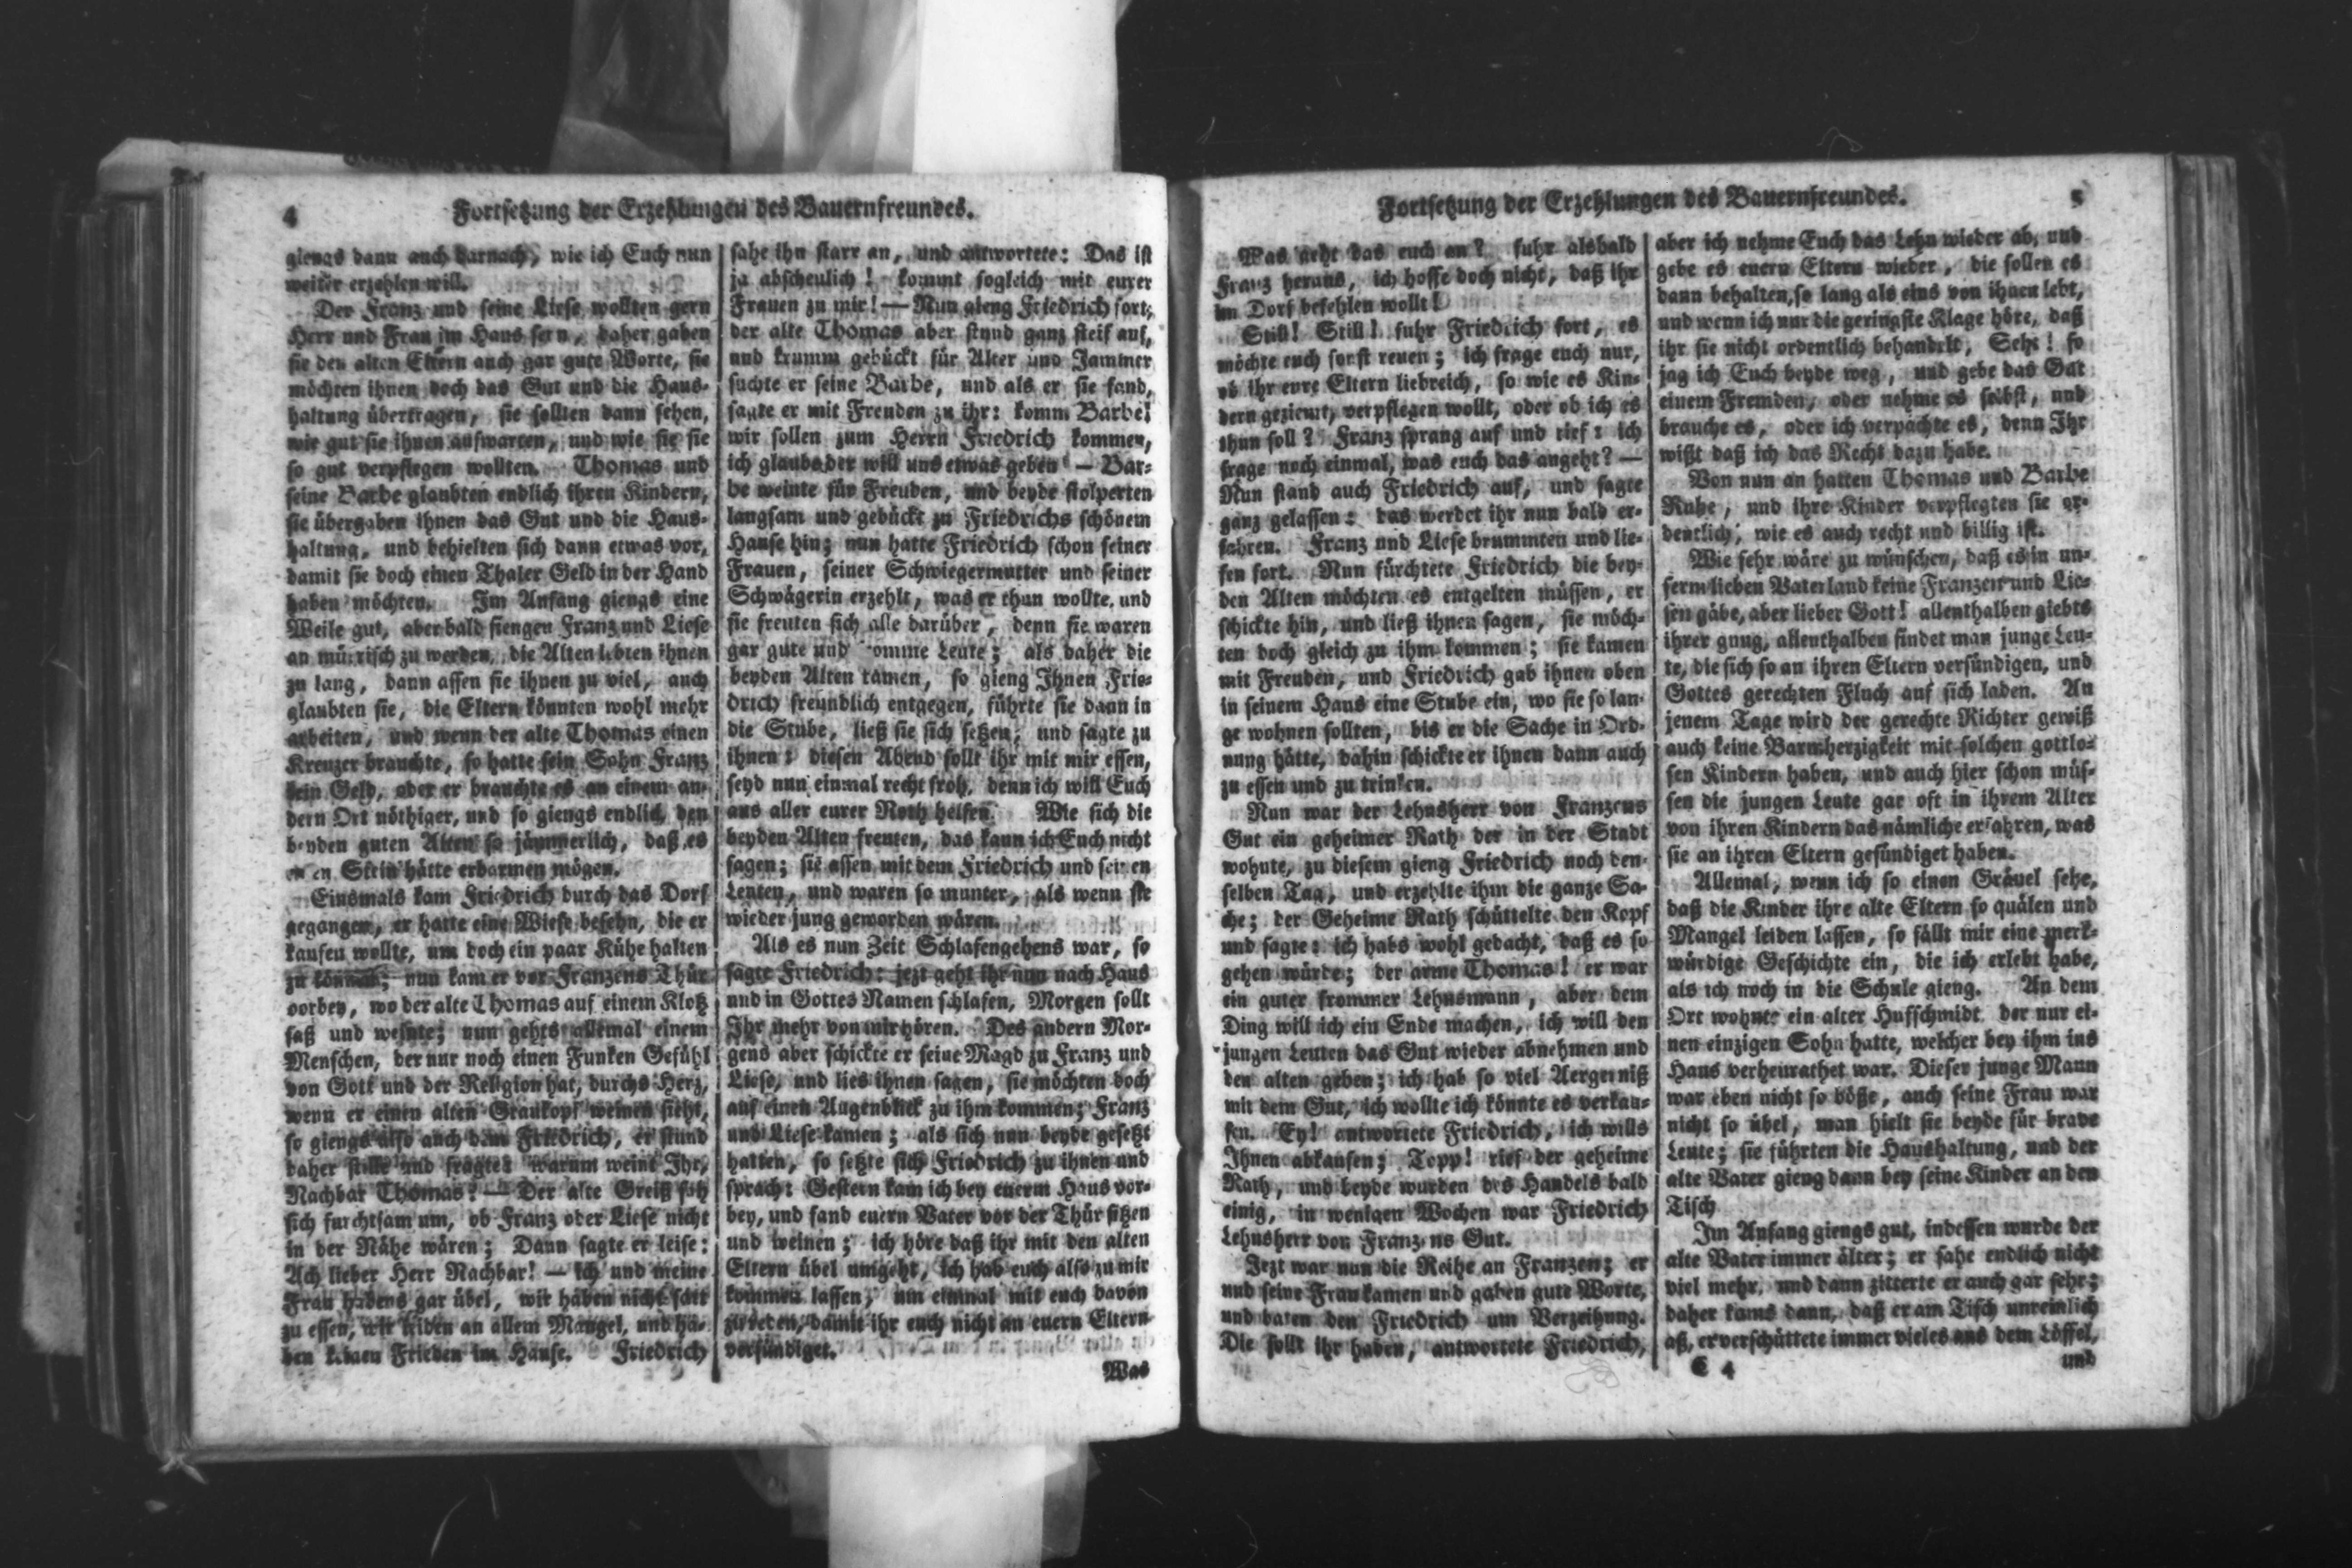 4
Fortsetzung der Erzehlungen des Bauernfreundes.
giengs dann auch darnach, wie ich Euch nun
weiter erzehlen will.
Der Franz und seine Liese wollten gern
Herr und Frau im Haus seyn, daher gaben
sie den alten Eltern auch gar gute Worte, sie
möchten ihnen doch das Gut und die Haus-
haltung übertragen, sie sollten dann sehen,
wie gut sie ihnen aufwarten, und wie sie sie
so gut verpflegen wollten. Thomas und
seine Barbe glaubten endlich ihren Kindern,
sie übergaben ihnen das Gut und die Haus-
haltung, und behielten sich dann etwas vor,
damit sie doch einen Thaler Geld in der Hand
haben möchten. Im Anfang giengs eine
Weile gut, aber bald fiengen Franz und Liese
an mürrisch zu werden, die Alten lebten ihnen
zu lang, dann assen sie ihnen zu viel, auch
glaubten sie, die Eltern könnten wohl mehr
arbeiten, und wenn der alte Thomas einen
Kreuzer brauchte, so hatte sein Sohn Franz
kein Geld, oder er brauchte es an einem an-
dern Ort nöthiger, und so giengs endlich den
beyden guten Alten so jämmerlich, daß es
einen Stein hätte erbarmen mögen.
Einsmals kam Friedrich durch das Dorf
gegangen, er hatte eine Wiese besehn, die er
kaufen wollte, um doch ein paar Kühe halten
zu können; nun kam er vor Franzens Thür
vorbey, wo der alte Thomas auf einem Klotz
saß und weinte; nun gehts allemal einem
Menschen, der nur noch einen Funken Gefühl
von Gott und der Religion hat, durchs Herz,
wenn er einen alten Graukopf weinen sieht,
so giengs also auch dem Friedrich, er stund
daher stille und fragte: warum weint Ihr,
Nachbar Thomas? — Der alte Greiß sah
sich furchtsam um, ob Franz oder Liese nicht
in der Nähe wären; Dann sagte er leise:
Ach lieber Herr Nachbar! — ich und meine
Frau habens gar übel, wir haben nicht satt
zu essen, wir leiden an allem Mangel, und ha-
ben keinen Frieden im Hause. Friedrich
sahe ihn starr an, und antwortete: Das ist
ja abscheulich! kommt sogleich mit eurer
Frauen zu mir! — Nun gieng Friedrich fort;
der alte Thomas aber stund ganz steif auf,
und krumm gebückt für Alter und Jammer
suchte er seine Barbe, und als er sie fand,
sagte er mit Freuden zu ihr: komm Barbe!
wir sollen zum Herrn Friedrich kommen,
ich glaube der will uns etwas geben — Bar-
be weinte für Freuden, und beyde stolperten
langsam und gebückt zu Friedrichs schönem
Hause hin; nun hatte Friedrich schon seiner
Frauen, seiner Schwiegermutter und seiner
Schwägerin erzehlt, was er thun wollte, und
sie freuten sich alle darüber, denn sie waren
gar gute und fromme Leute; als daher die
beyden Alten kamen, so gieng Ihnen Frie-
drich freundlich entgegen, führte sie dann in
die Stube, ließ sie sich setzen, und sagte zu
ihnen: diesen Abend sollt ihr mit mir essen,
seyd nun einmal recht froh, denn ich will Euch
aus aller eurer Noth helfen. Wie sich die
beyden Alten freuten, das kann ich Euch nicht
sagen; sie assen mit dem Friedrich und seinen
Leuten, und waren so munter, als wenn sie
wieder jung geworden wären.
Als es nun Zeit Schlafengehens war, so
sagte Friedrich: jezt geht ihr nun nach Haus
und in Gottes Namen schlafen, Morgen sollt
Ihr mehr von mir hören. Des andern Mor-
gens aber schickte er seine Magd zu Franz und
Liese, und lies ihnen sagen, sie möchten doch
auf einen Augenblick zu ihm kommen; Franz
und Liese kamen; als sich nun beyde gesetzt
hatten, so setzte sich Friedrich zu ihnen und
sprach: Gestern kam ich bey euerm Haus vor-
bey, und fand euern Vater vor der Thür sitzen
und weinen; ich höre daß ihr mit den alten
Eltern übel umgeht, ich hab euch also zu mir
kommen lassen, um einmal mit euch davon
zu reden, damit ihr euch nicht an euern Eltern
versündiget.
Was
Fortsetzung der Erzehlungen des Bauernfreundes.
5
Was geht das euch an? fuhr alsbald
Franz heraus, ich hoffe doch nicht, daß ihr
im Dorf befehlen wollt!
Still! Still! fuhr Friedrich fort, es
möchte euch sonst reuen; ich frage euch nur,
ob ihr eure Eltern liebreich, so wie es Kin-
dern geziemt, verpflegen wollt, oder ob ich es
thun soll? Franz sprang auf und rief: ich
frage noch einmal, was euch das angeht? —
Nun stand auch Friedrich auf, und sagte
ganz gelassen: das werdet ihr nun bald er-
fahren. Franz und Liese brummten und lie-
fen fort. Nun fürchtete Friedrich die bey-
den Alten möchten es entgelten müssen, er
schickte hin, und ließ ihnen sagen, sie möch-
ten doch gleich zu ihm kommen; sie kamen
mit Freuden, und Friedrich gab ihnen oben
in seinem Haus eine Stube ein, wo sie so lan-
ge wohnen sollten, bis er die Sache in Ord-
nung hätte, dahin schickte er ihnen dann auch
zu essen und zu trinken.
Nun war der Lehnsherr von Franzens
Gut ein geheimer Rath der in der Stadt
wohnte, zu diesem gieng Friedrich noch den-
selben Tag, und erzehlte ihm die ganze Sa-
che; der Geheime Rath schüttelte den Kopf
und sagte: ich habs wohl gedacht, daß es so
gehen würde; der arme Thomas! er war
ein guter frommer Lehnsmann, aber dem
Ding will ich ein Ende machen, ich will den
jungen Leuten das Gut wieder abnehmen und
den alten geben; ich hab so viel Aergerniß
mit dem Gut, ich wollte ich könnte es verkau-
fen. Ey! antwortete Friedrich, ich wills
Ihnen abkaufen; Topp! rief der geheime
Rath, und beyde wurden des Handels bald
einig, in wenigen Wochen war Friedrich
Lehnsherr von Franzens Gut.
Jezt war nun die Reihe an Franzen; er
und seine Frau kamen und gaben gute Worte,
und baten den Friedrich um Verzeihung.
Die sollt ihr haben, antwortete Friedrich,
aber ich nehme Euch das Lehn wieder ab, und
gebe es euern Eltern wieder, die sollen es
dann behalten, so lang als eins von ihnen lebt,
und wenn ich nur die geringste Klage höre, daß
ihr sie nicht ordentlich behandelt, Seht! so
jag ich Euch beyde weg, und gebe das Gut
einem Fremden, oder nehme es selbst, und
brauche es, oder ich verpachte es, denn Ihr
wißt daß ich das Recht dazu habe.
Von nun an hatten Thomas und Barbe
Ruhe, und ihre Kinder verpflegten sie or-
dentlich, wie es auch recht und billig ist.
Wie sehr wäre zu wünschen, daß es in un-
serm lieben Vaterland keine Franzen und Lie-
sen gäbe, aber lieber Gott! allenthalben giebts
ihrer gnug, allenthalben findet man junge Leu-
te, die sich so an ihren Eltern versündigen, und
Gottes gerechten Fluch auf sich laden. An
jenem Tage wird der gerechte Richter gewiß
auch keine Barmherzigkeit mit solchen gottlo-
sen Kindern haben, und auch hier schon müs-
sen die jungen Leute gar oft in ihrem Alter
von ihren Kindern das nämliche erfahren, was
sie an ihren Eltern gesündiget haben.
Allemal, wenn ich so einen Gräuel sehe,
daß die Kinder ihre alte Eltern so quälen und
Mangel leiden lassen, so fällt mir eine merk-
würdige Geschichte ein, die ich erlebt habe,
als ich noch in die Schule gieng. An dem
Ort wohnte ein alter Hufschmidt, der nur ei-
nen einzigen Sohn hatte, welcher bey ihm ins
Haus verheurathet war. Dieser junge Mann
war eben nicht so böße, auch seine Frau war
nicht so übel, man hielt sie beyde für brave
Leute; sie führten die Haushaltung, und der
alte Vater gieng dann bey seine Kinder an den
Tisch
Im Anfang giengs gut, indessen wurde der
alte Vater immer älter; er sahe endlich nicht
viel mehr, und dann zitterte er auch gar sehr;
daher kams dann, daß er am Tisch unreinlich
aß, er verschüttete immer vieles aus dem Löffel,
C 4
und